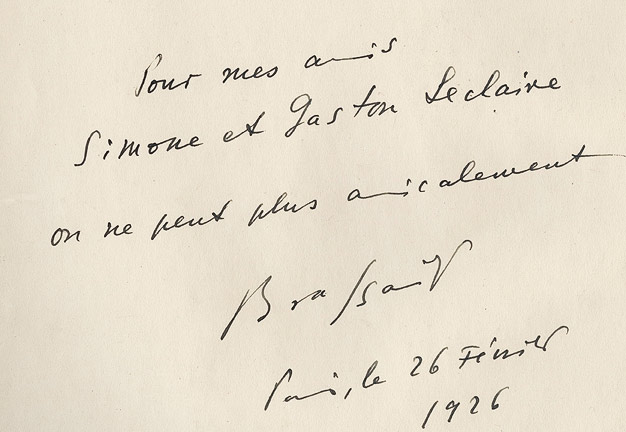 Pour mes amis
Simone et Gaston Leclaire
on ne peut plus amicalement
Brassaï
Paris, le 26 Février
1926